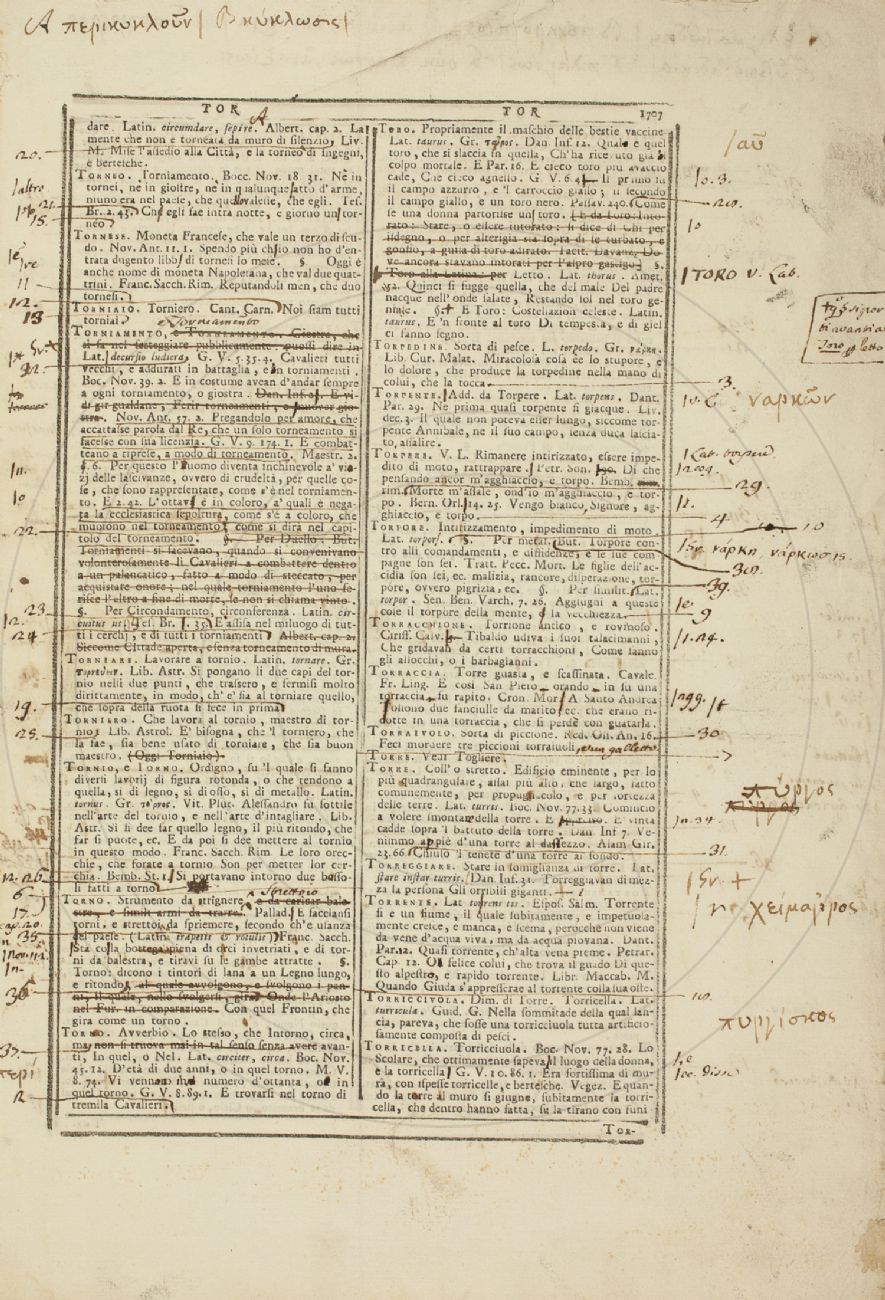 A περικυκλοῦν | B κύκλωσις |
TOR
TOR
1707
dare. Latin. circumdare, sepire. Albert. cap. 2. La
mente che non è torneata da muro di silenzio, Liv.
M. Mise l'assedio alla Città, e la torneò di ingegni,
e bertesche.
TORNEO. Torniamento. Bocc. Nov. 18. 31. Nè in
tornei, nè in giostre, nè in qualunque fatto d'arme,
niuno era nel paese, che quello valesse, che egli. Tes.
Br. 2. 45. Che egli fae intra notte, e giorno un tor-
neo
TORNESE. Moneta Francese, che vale un terzo di scu-
do. Nov. Ant. 11. 1. Spendo più che io non ho d'en-
trata dugento libbre di tornesi lo mese. §. Oggi è
anche nome di moneta Napoletana, che val due quat-
trini. Franc. Sacch. Rim. Reputandoli men, che duo
tornesi.
TORNIAIO. Torniero. Cant. Carn. Noi siam tutti
torniai
o Torneamento
TORNIAMENTO, e TORNEAMENTO. Giostra, che
si fa nel festeggiare pubblicamente, quossi dire in
Lat. decursio ludicra. G. V. 5. 35. 4. Cavalieri tutti
vecchi, e addurati in battaglia, e in torniamenti.
Boc. Nov. 39. 2. E in costume avean d'andar sempre
a ogni torniamento, o giostra. Dan. Inf. 22. E vi-
di gir gualdane, Ferir torneamenti, e muover gio-
stra. Nov. Ant. 57. 2. Pregandolo per amore, che
accattasse parola dal Re, che un solo torneamento si
facesse con sua licenzia. G. V. 9. 174. 1. E combat-
teano a riprese, a modo di torneamento. Maestr. 2.
§. 6. Per questo l'uomo diventa inchinevole a' vi-
zj delle lascivanze, ovvero di crudeltà, per quelle co-
se, che sono rappresentate, come s'è nel torniamen-
to. E 2. 42. L'ottava è in coloro, a' quali è nega-
ta la ecclesiastica sepoltura, come s'è a coloro, che
muojono nel torneamento, come si dirà nel capi-
tolo del torneamento. §. Per Duello. But.
Torniamenti si facevano, quando si convenivano
volonterosamente li Cavalieri a combattere dentro
a un palancatico, fatto a modo di steccato, per
acquistare onore; nel quale torniamento l'uno fe-
risce l'altro a fine di morte, se non si chiama vinto.
§. Per Circondamento, circonferenza. Latin. cir-
cuitus us. Tes. Br. 2. 35. E assisa nel miluogo di tut-
ti i cerchj, e di tutti i torniamenti. Albert. cap. 2.
Siccome Cittade aperta, e senza torneamento di mura.
TORNIARE. Lavorare a tornio. Latin. tornare. Gr.
τορνεύειν. Lib. Astr. Si pongano li due capi del tor-
nio nelli due punti, che trassero, e fermisi molto
dirittamente, in modo, ch' e' sia al torniare quello,
che sopra della ruota si fece in prima
TORNIERO. Che lavora al tornio, maestro di tor-
nio. Lib. Astrol. E' bisogna, che 'l torniero, che
la fae, sia bene usato di torniare, che sia buon
maestro. (Oggi Torniaio).
TORNIO, e TORNO. Ordigno, su 'l quale si fanno
diverti lavorij di figura rotonda, o che tendono a
quella, si di legno, si di osso, si di metallo. Latin.
tornus. Gr. τόρνος. Vit. Plut. Alessandro fu sottile
nell'arte del tornio, e nell'arte d'intagliare. Lib.
Astr. Si li dee far quello legno, il più ritondo, che
far si puote, ec. E da poi si dee mettere al tornio
in questo modo. Franc. Sacch. Rim. Le loro orec-
chie, che forate a tornio. Son per metter lor cer-
chia. Bemb. St. 1. Si portavano intorno due bosso-
li fatti a torno
TORNO. Strumento da strignere, e da caricar bale-
stre, e simili armi da trarre. Pallad. E faceiansi
torni, e strettoi da spriemere, secondo ch'è usanza
nel paese. (Latin. trapetis & volutis) Franc. Sacch.
Sta colla bottega piena di orci invetriati, e di tor-
ni da balestra, e tiravi su le gambe attratte. §.
Torno: dicono i tintori di lana a un Legno lungo,
e ritondo, al quale avvolgono, e svolgono i pan-
ni, il quale, nello svolgersi, gira. Onde l'Ariosto
nel Fur. in comparazione. Con quel Frontin, che
gira come un torno.
TORNO. Avverbio. Lo stesso, che Intorno, circa,
ma non si truova mai in tal senso senza avere avan-
ti, In quel, o Nel. Lat. circiter, circa. Boc. Nov.
45. 12. D'età di due anni, o in quel torno. M. V.
8. 74. Vi venno numero d'ottanta, o in
quel torno. G. V. 8. 89. 1. E trovarsi nel torno di
tremila Cavalieri.
TORO. Propriamente il maschio delle bestie vaccine
Lat. taurus. Gr. ταῦρος. Dan. Inf. 12. Qual è quel
toro, che si slaccia in quella, Ch'ha ricevuto già 'l
colpo mortale. E Par. 16. E cieco toro più avaccio
cade, Che cieco agnello. G. V. 6. Il primo in
il campo azzurro, e 'l carroccio giallo; il secondo
il campo giallo, e un toro nero. Passav. 240. Come
se una donna partorisse un toro.
gonfio, a guisa di toro adirato. Tacit. Davanz. Do-
ve ancora stavano intorati per l'aspro gastigo. §.
Toro alla Latina. per Letto. Lat. thorus. Amet.
92. Quinci si fugge quella, che del male Del padre
nacque nell'onde salate, Restando sol nel toro ge-
nitale. § E Toro: Costellazion celeste. Latin.
taurus. E 'n fronte al toro Di tempesta, e di giel
ci fanno segno.
TORPEDINE. Sorta di pesce. L. torpedo. Gr. νάρκη.
Lib. Cur. Malat. Miracolosa cosa è lo stupore, e
lo dolore, che produce la torpedine nella mano di
colui, che la tocca
TORPENTE. Add. da Torpere. Lat. torpens. Dant.
Par. 29. Nè prima quasi torpente si giacque. Liv.
dec. 3. Il quale non poteva esser lungo, siccome tor-
pente Annibale, nè il suo campo, senza duca lascia-
to, assalire.
TORPERE. V. L. Rimanere intirizzato, essere impe-
dito di moto, rattrappare. Petr. Son. 190. Di che
pensando ancor m'agghiaccio, e torpo. Bemb.
rim. Morte m'assale, ond'io m'agghiaccio, e tor-
po. Bern. Orl. 14. 25. Vengo bianco, Signore, ag-
ghiaccio, e torpo.
TORPORE. Intirizzamento, impedimento di moto
Lat. torpor. §. Per metaf. But. Torpore con-
tro alli comandamenti, e diffidenze; e le sue com
pagne son sei. Tratt. Pecc. Mort. Le figlie dell'ac-
cidia son sei, ec. malizia, rancore, disperazione, tor-
pore, ovvero pigrizia, ec. §. Per similit. Lat.
torpor. Sen. Ben. Varch. 7. 26. Aggiugni a queste
cose il torpore della mente, e la vecchiezza
TORRACCHIONE. Torrione antico, e rovinoso.
Ciriff. Calv. Tibaldo udiva i suoi falacimanni,
Che gridavan da certi torracchioni, Come fanno
gli allocchi, o i barbagianni.
TORRACCIA. Torre guasta, e scassinata. Cavalc.
Fr. Ling. E così San Piero orando in su una
torraccia fu rapito. Cron. Mor. A Santo Andrea
fono due fanciulle da marito, ec. che erano ri-
dotte in una torraccia, che si perdè con guatarla.
TORRAIVOLO. Sorta di piccione. Red. Oss. An. 16.
Feci mordere tre piccioni torraiuoli, e un galletto
TORRE. Vedi Togliere.
TORRE. Coll'o stretto. Edificio eminente, per lo
più quadrangulare, assai più alto, che largo, fatto
comunemente, per propugnacolo, e per fortezza
delle terre. Lat. turris. Boc. Nov. 77. 33. Cominciò
a volere smontar della torre. E E vinta
cadde sopra 'l battuto della torre. Dan. Inf. 7. Ve-
nimmo appiè d'una torre al dassezzo. Alam. Gir.
23. 66. Chiuso 'l tenete d'una torre al fondo.
TORREGGIARE. Stare in somiglianza di torre. Lat.
stare instar turris. Dan. Inf. 31. Torreggiavan di mez-
za la persona Gli orribili giganti.
TORRENTE. Lat. torrens tis. Espos. Salm. Torrente
si è un fiume, il quale subitamente, e impetuosa-
mente cresce, e manca, e scema, perocchè non viene
da vene d'acqua viva, ma da acqua piovana. Dant.
Par. 12. Quasi torrente, ch'alta vena preme. Petrar.
Cap. 12. O! felice colui, che trova il guado Di que-
sto alpestro, e rapido torrente. Libr. Maccab. M.
Quando Giuda s'appressierae al torrente colla sua oste.
TORRICCIVOLA. Dim. di Torre. Torricella. Lat.
turricula. Guid. G. Nella sommitade della qual lan-
cia, pareva, che fosse una torricciuola tutta artificio-
samente composta di pesci.
TORRICELLA. Torricciuola. Boc. Nov. 77. 28. Lo
Scolare, che ottimamente sapeva il luogo della donna,
e la torricella. G. V. 10. 86. 1. Era fortissima di mu-
ra, con ispesse torricelle, e bertesche. Vegez. E quan-
do la torre al muro si giugne, subitamente la torri-
cella, che dentro hanno fatta, su la tirano con funi
TOR-
| αῦ
TORO v. Lab.
ναρκῶν
νάρκη, νάρκωσις.
πύργος
χείμαῤῥος
πυργίσκος